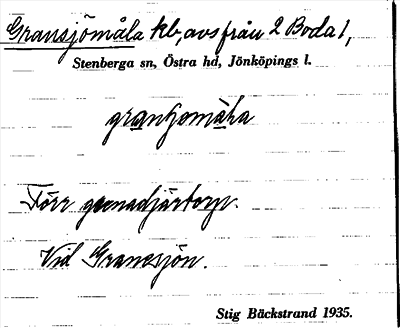 Gransjömåla kb, avs från 2 Boda 1,
Stenberga sn, Östra hd, Jönköpings l.
Förr grenadjärtorp.
Vid Gransjön.
Stig Bäckstrand 1935.